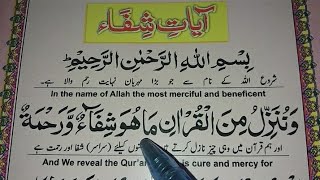 آیاتِ شِفَاء
بِسْمِ اللهِ الرَّحْمٰنِ الرَّحِيْمِ
شروع اللہ کے نام سے جو بڑا مہربان نہایت رحم والا ہے۔
In the name of Allah the most merciful and beneficent
وَنُنَزِّلُ مِنَ الْقُرْاٰنِ مَا هُوَ شِفَآءٌ وَّرَحْمَةٌ
اور ہم قرآن میں وہی چیز نازل کرتے کیلئے (سراسر) شفا اور رحمت ہے
And We reveal the Qur' is cure and mercy for